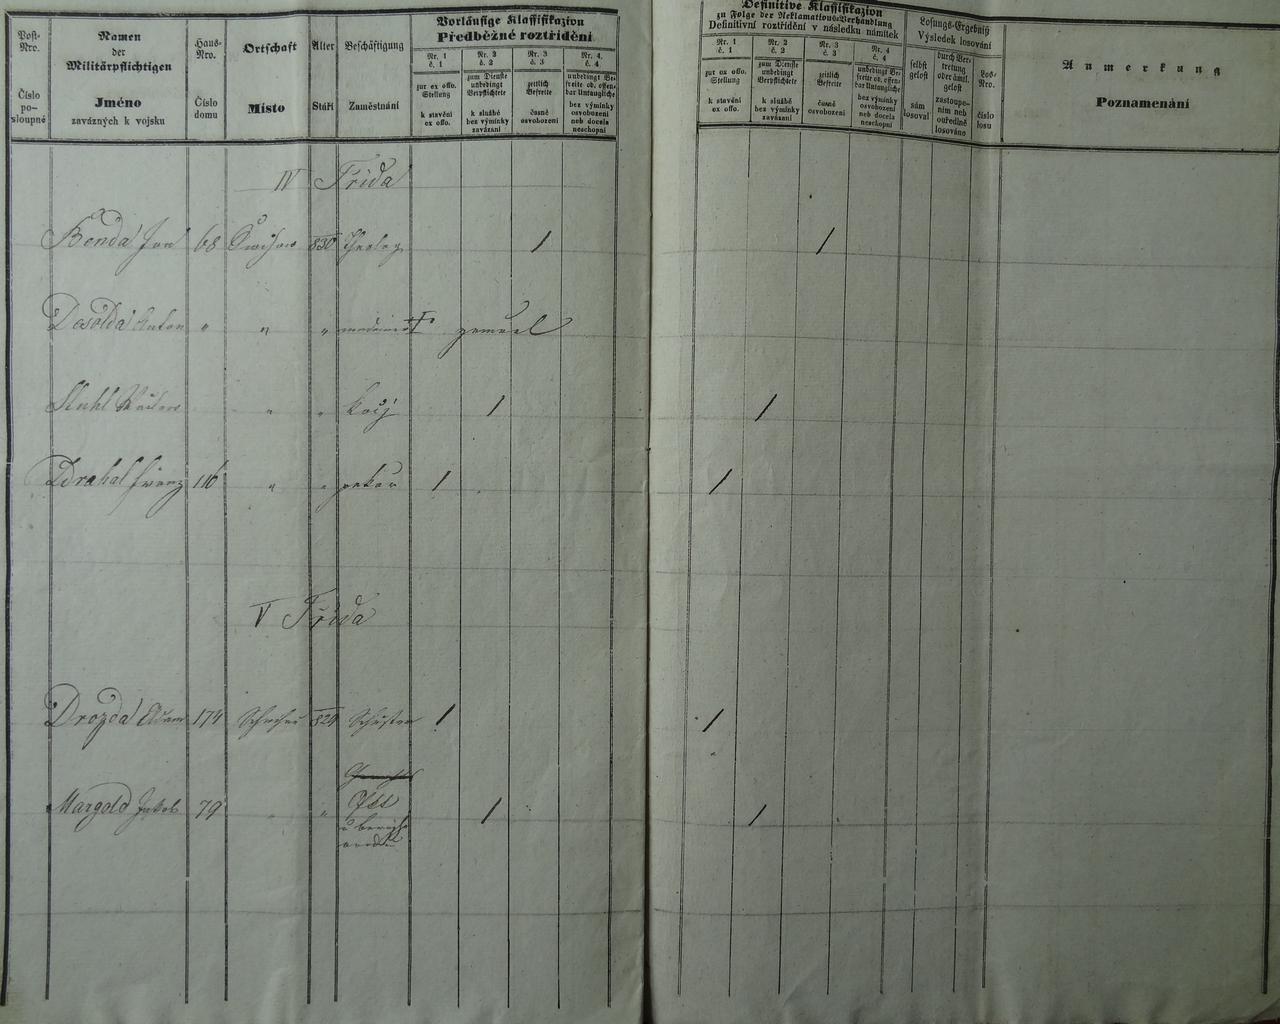 Post-Nro.
Číslo po-sloupné
Namen
der
Militärpflichtigen
Jméno
zavázných k vojsku
Haus-Nro.
Číslo domu
Ortschaft
Místo
Alter
Stáří
Beschäftigung
Zaměstnání
Vorläufige Klassifikazion
Předběžné roztřídění
Nr. 1
č. 1
zur ex offo.
Stellung
k stavění
ex offo.
Nr. 2
č. 2
zum Dienste
unbedingt
Verpflichtete
k službě
bez výmínky
zavázaní
Nr. 3
č. 3
zeitlich
Befreite
časně
osvobození
Nr. 4.
č. 4
unbedingt Be-
freite ob. offen-
bar Untaugliche
bez výmínky
osvobození
neb docela
neschopní
Definitive Klassifikazion
zu Folge der Reklamations-Verhandlung
Definitivní roztřídění v následku námitek
Nr. 1
č. 1
zur ex offo.
Stellung
k stavění
ex offo.
Nr. 2
č. 2
zum Dienste
unbedingt
Verpflichtete
k službě
bez výmínky
zavázaní
Nr. 3
č. 3
zeitlich
Befreite
časně
osvobození
Nr. 4
č. 4
unbedingt Be-
freite ob. offen-
bar Untaugliche
bez výmínky
osvobození
neb docela
neschopní
Losungs-Ergebniß
Výsledek losování
selbst
gelost
sám
losoval
durch Ver-
tretung
oder ämtl.
gelost
zastoupe-
ním neb
ouředlně
losováno
Los-
Nro.
číslo
losu
Anmerkung
Poznamenání
IV Třída
Benda Jan 68 830 Theolog / /
Desolda Anton " " "
" " /  /
Drahal Franz 116 " " pekař / /
V Třída
Drozda Adam 174 829 Schuster / /
Margold Jakob 79 " " / /